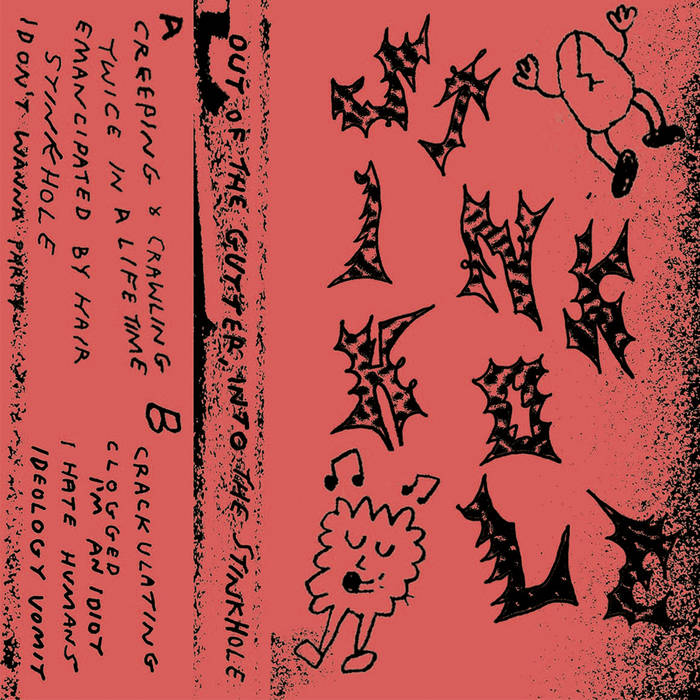 STINK
HOLE
OUT OF THE GUTTER, INTO THE STINKHOLE
A
CREEPING & CRAWLING
TWICE IN A LIFETIME
EMANCIPATED BY HAIR
STINKHOLE
I DON'T WANNA PARTY
B
CRACKULATING
CLOGGED
I'M AN IDIOT
I HATE HUMANS
IDEOLOGY VOMIT